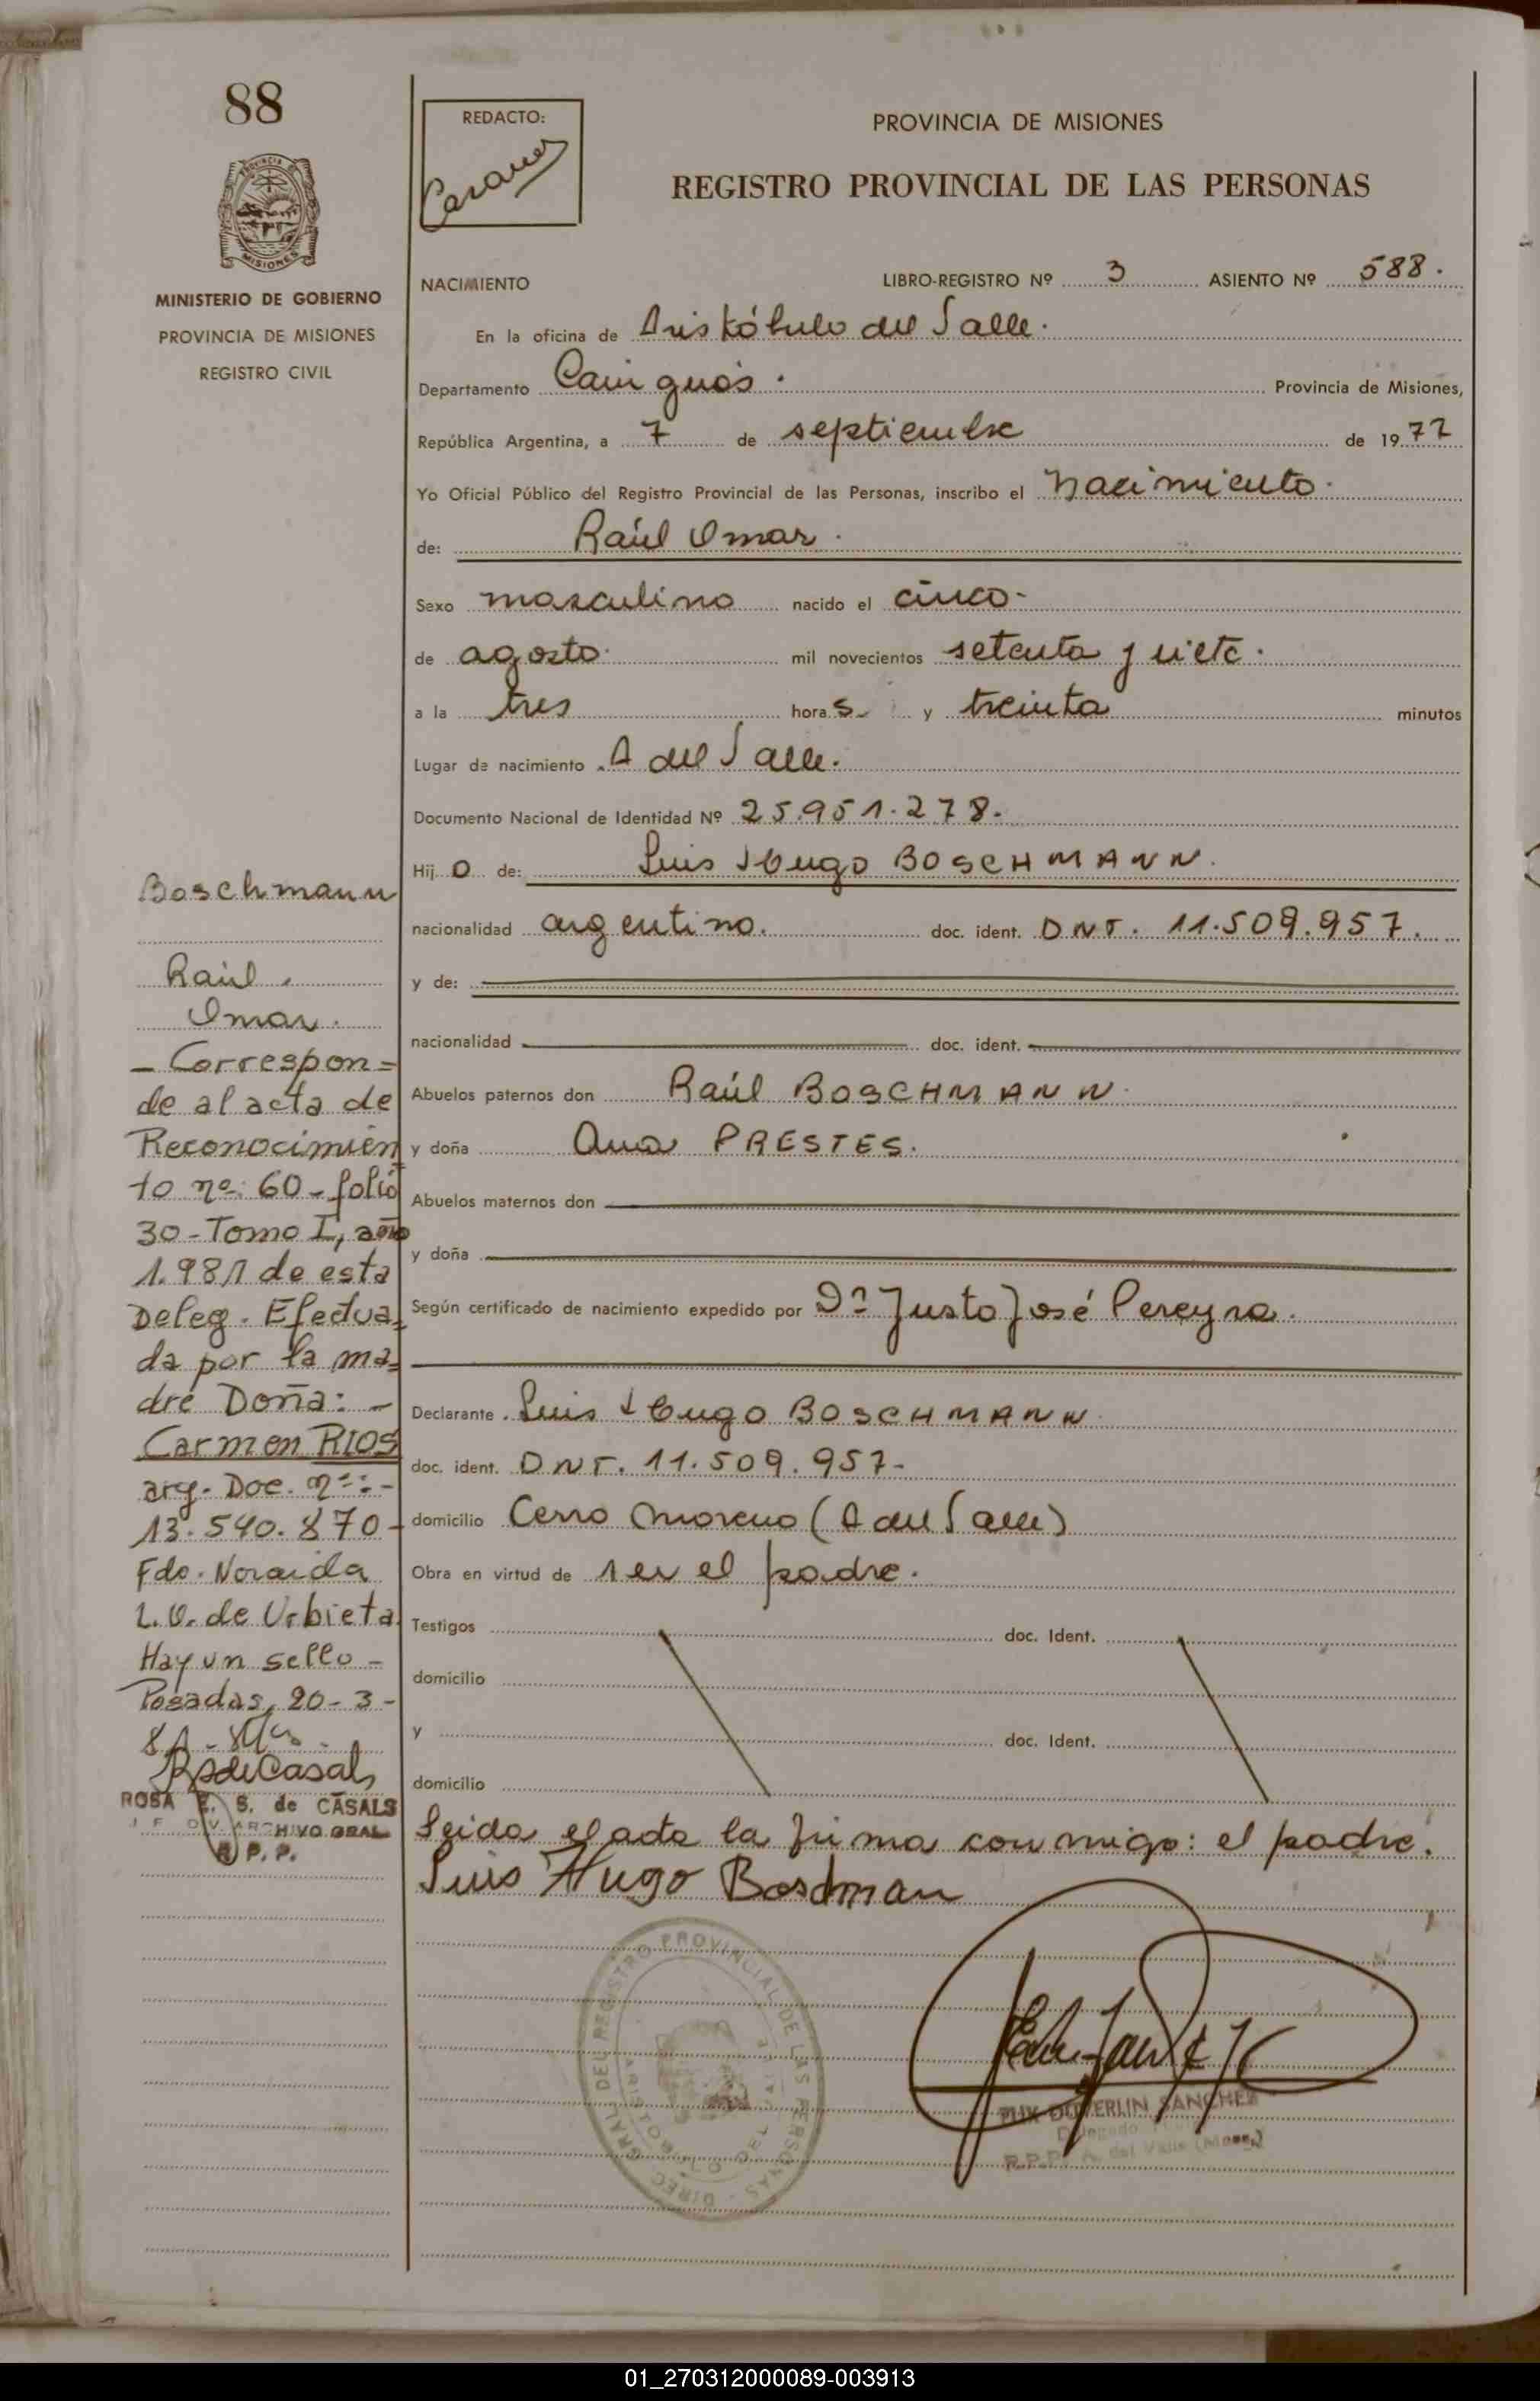 88
PROVINCIA DE MISIONES
MINISTERIO DE GOBIERNO
PROVINCIA DE MISIONES
REGISTRO CIVIL
Boschmann
Raúl
Omar.
- Correspon=
de al acta de
Reconocimien
to nº: 60 - folio
30 - Tomo I, año
1.981 de esta
Deleg. Efectua
da por la ma=
dre Doña: -
Carmen RIOS
arg. Doc. nº: -
13.540.870 -
Fdo. Noraida
L.O. de Urbieta
Hay un sello -
Posadas, 20 - 3 -
81 -
RSdeCasals
ROSA E. S. de CASALS
JEF DIV. ARCHIVO GRAL
R. P. P.
REDACTO:
PROVINCIA DE MISIONES
REGISTRO PROVINCIAL DE LAS PERSONAS
NACIMIENTO LIBRO-REGISTRO Nº 3 ASIENTO Nº 588.
En la oficina de Aristóbulo del Valle.
Departamento Cainguás. Provincia de Misiones,
República Argentina, a 7 de septiembre de 1977
Yo Oficial Público del Registro Provincial de las Personas, inscribo el nacimiento.
de: Raúl Omar.
Sexo masculino nacido el cinco -
de agosto. mil novecientos setenta y siete.
a la tres hora s. y treinta minutos
Lugar de nacimiento A del Valle.
Documento Nacional de Identidad Nº 25.951.278.
Hij o de: Luis Hugo BOSCHMANN.
nacionalidad argentino. doc. ident. DNI. 11.509.957.
y de:
nacionalidad doc. ident.
Abuelos paternos don Raúl BOSCHMANN.
y doña Ana PRESTES.
Abuelos maternos don
y doña
Según certificado de nacimiento expedido por Dr Justo José Pereyra.
Declarante Luis Hugo BOSCHMANN
doc. ident. DNI. 11.509.957-
domicilio Cerro Moreno (A del Valle)
Obra en virtud de ser el padre.
Testigos doc. Ident.
domicilio
y doc. Ident.
domicilio
Leida el acta la firma conmigo: el padre.
Luis Hugo Boschman
DIREC. GRAL DEL REGISTRO PROVINCIAL DE LAS PERSONAS
ARISTOBULO DEL VALLE
SANCHEZ
Delegado
R.P.P. A. del Valle (Mnes.)
01_270312000089-003913